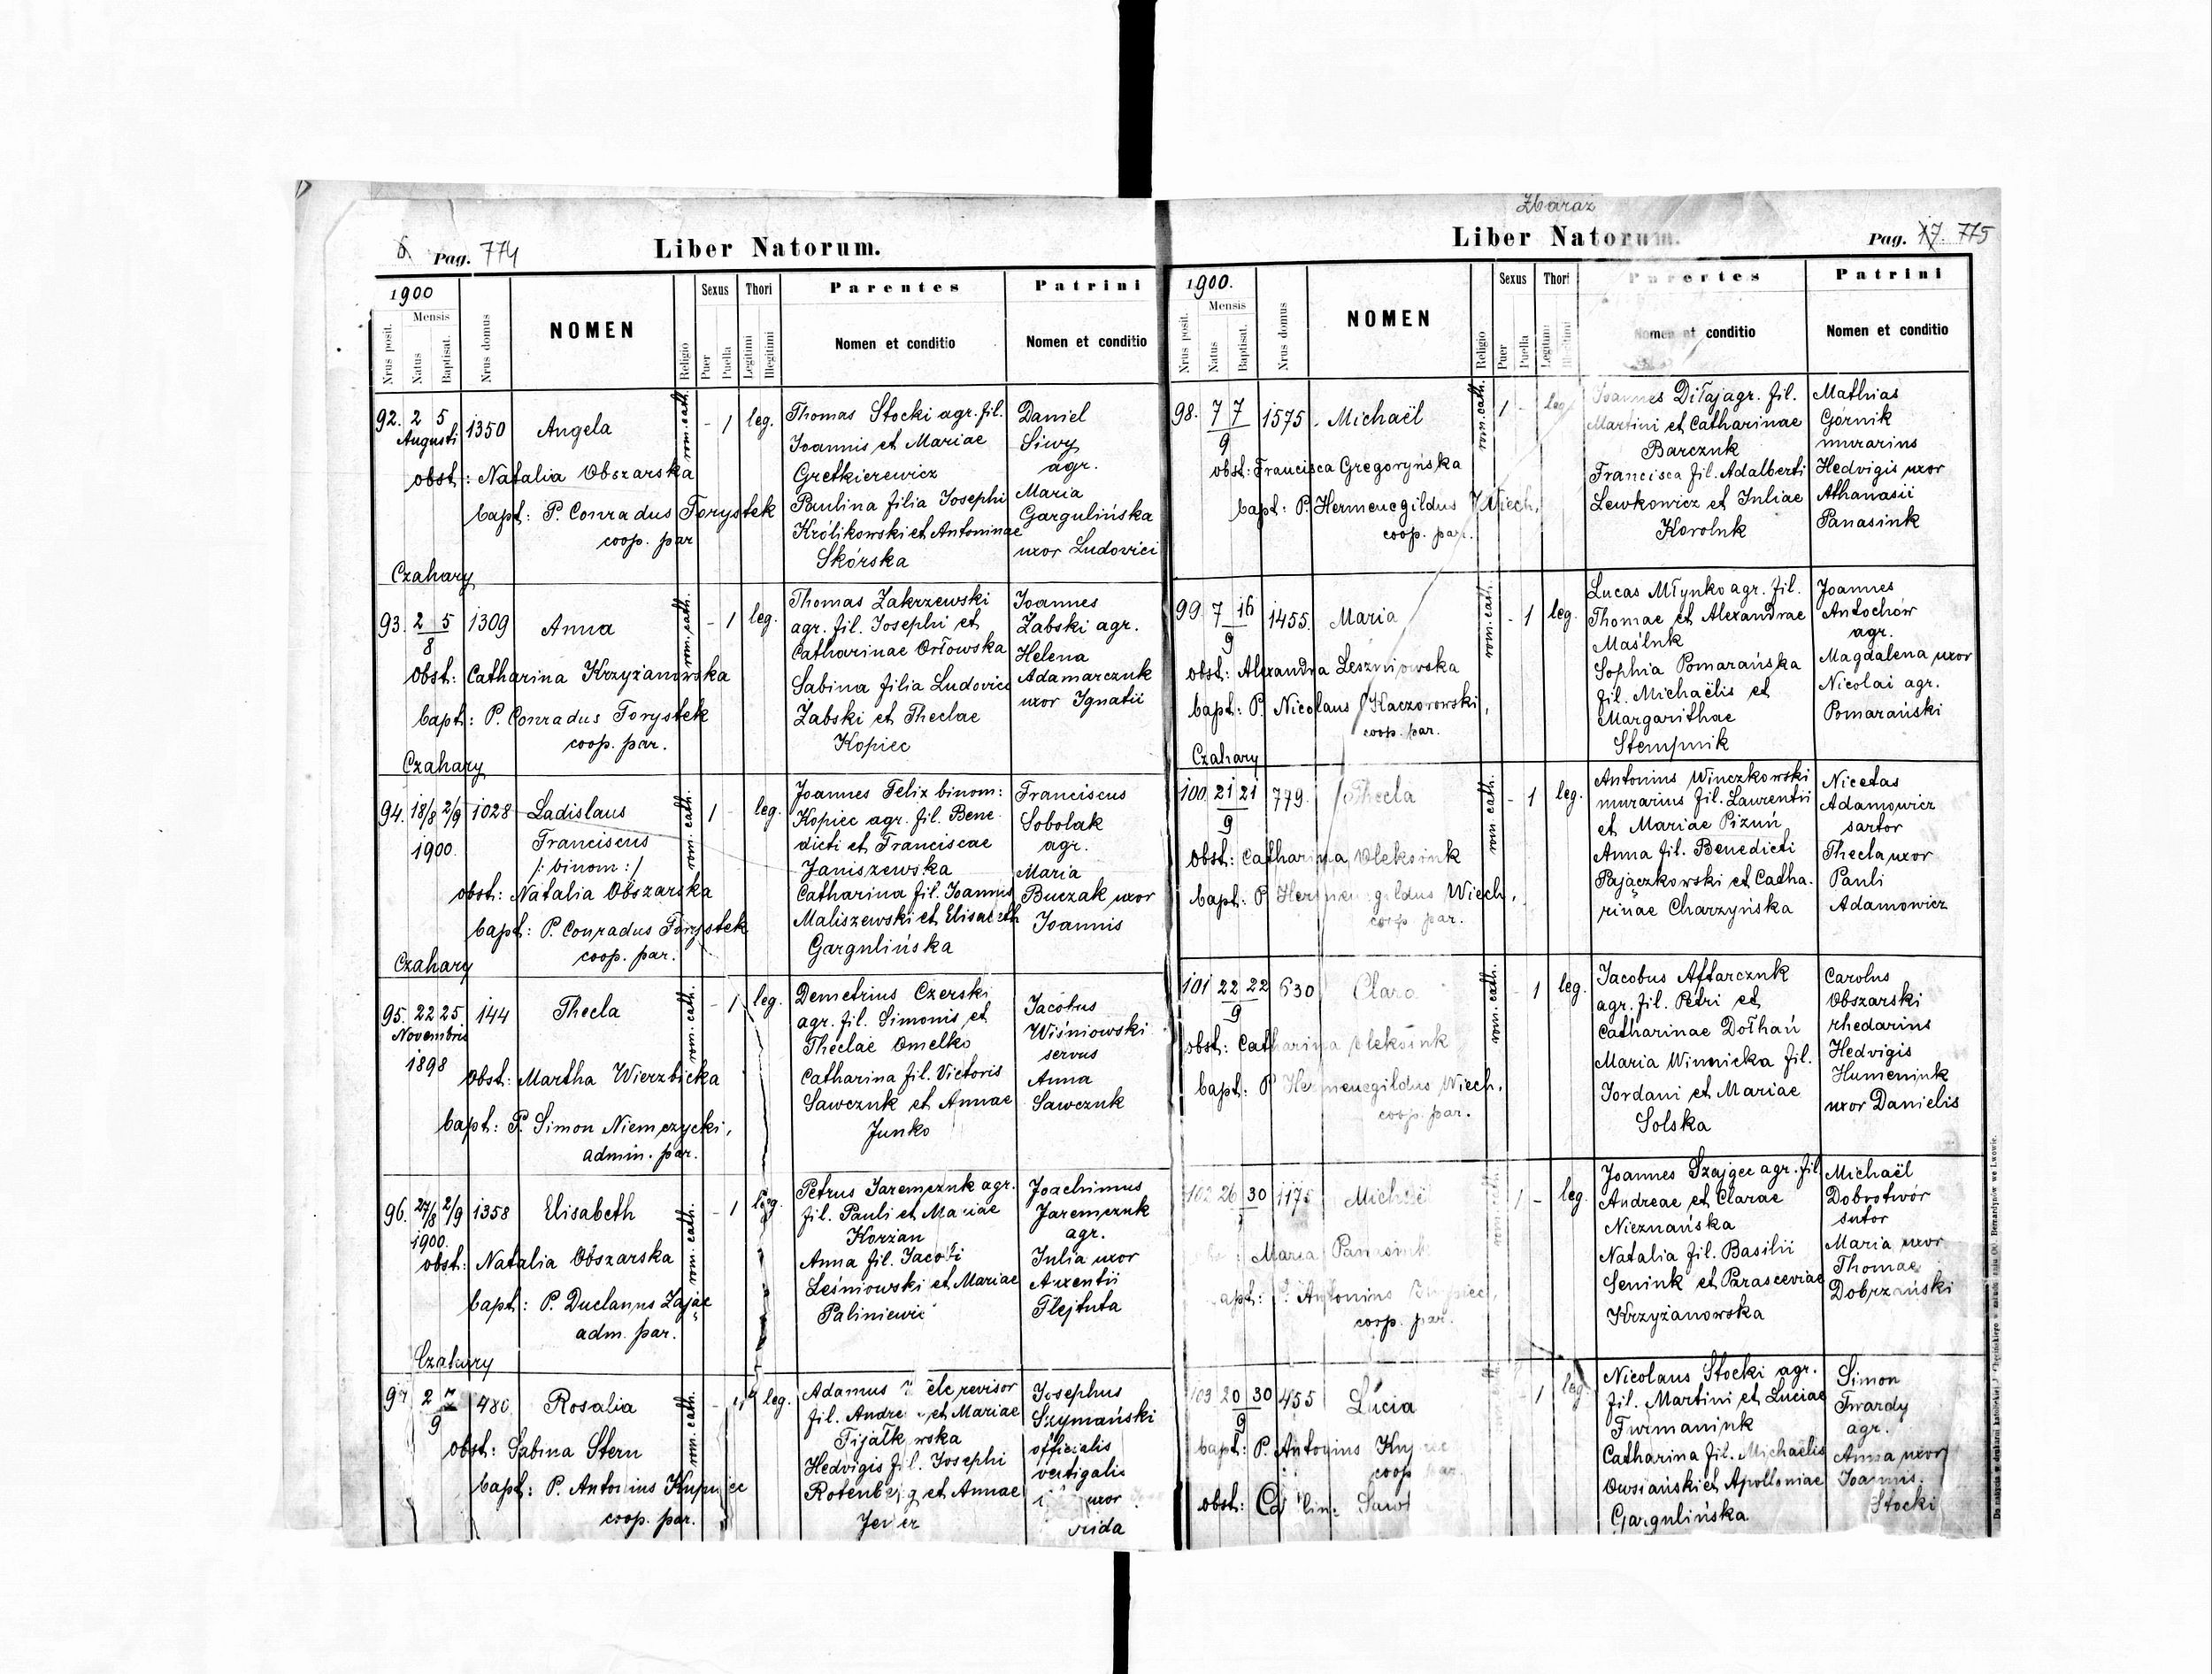 Pag. 774
Liber Natorum.
1900
Nrus posit.
Mensis
Natus
Baptisat.
Nrus domus
NOMEN
Religio
Sexus
Puer
Puella
Thori
Legitimi
Illegitimi
Parentes
Nomen et conditio
Patrini
Nomen et conditio
92. 2 5
Augusti
1350
Angela
rom. cath.
- 1
leg.
obst: Natalia Obszarska
bapt: P. Conradus Forystek
coop. par
Czahary
Thomas Stocki agr. fil.
Joannis et Mariae
Gretkierewicz
Paulina filia Josephi
Królikowski et Antoninae
Skórska
Daniel
Siwy
agr.
Maria
Gargulińska
uxor Ludovici
93. 2 5
8
1309
Anna
rom. cath.
- 1
leg.
obst: Catharina Krzyżanowska
bapt: P. Conradus Forystek
coop. par.
Czahary
Thomas Zakrzewski
agr. fil. Josephi et
Catharinae Orłowska
Sabina filia Ludovici
Żabski et Theclae
Kopiec
Joannes
Żabski agr.
Helena
Adamarczuk
uxor Ignatii
94. 18/8 2/9
1900.
1028
Ladislaus
Franciscus
/: binom :/
rom. cath.
1 -
leg.
obst: Natalia Obszarska
bapt: P. Conradus Forystek
coop. par.
Czahary
Joannes Felix binom:
Kopiec agr. fil. Bene
dicti et Franciscae
Janiszewska
Catharina fil. Joannis
Maliszewski et Elisabeth
Gargulińska
Franciscus
Sobolak
agr.
Maria
Buczak uxor
Joannis
95. 22 25
Novembris
1898
144
Thecla
rom. cath.
- 1
leg.
Obst: Martha Wierzbicka
bapt: P. Simon Niemczycki,
admin. par.
Demetrius Czerski
agr. fil. Simonis et
Theclae Omelko
Catharina fil. Victoris
Sawczuk et Annae
Junko
Jacobus
Wiśniowski
servus
Anna
Sawczuk
96. 27/8 2/9
1900.
1358
Elisabeth
rom. cath.
- 1
leg.
obst: Natalia Obszarska
bapt: P. Duclanus Zając
adm. par.
Czahary
Petrus Jaremczuk agr.
fil. Pauli et Mariae
Korzan
Anna fil. Jacobi
Leśniowski et Mariae
Joachimus
Jaremczuk
agr.
Julia uxor
Auxentii
Flejtuta
97 2 7
9
480
Rosalia
rom. cath.
leg.
obst: Sabina Stern
bapt: P. Antonius Kupniec
coop. par.
Adamus revisor
fil. Andreae et Mariae
Hedvigis fil. Josephi
Rotenberg et Annae
Josephus
Szymański
officialis
vectigalis
uxor
Zbaraż
Liber Natorum.
Pag. 17. 775
1900.
Nrus posit.
Mensis
Natus
Baptisat.
Nrus domus
NOMEN
Religio
Sexus
Puer
Puella
Thori
Legitimi
Illegitimi
Parentes
Nomen et conditio
Patrini
Nomen et conditio
98. 7 7
9
1575.
Michaël
rom. cath.
1 -
leg
obst: Francisca Gregoryńska
bapt: P. Hermenegildus Wiech,
coop. par.
Joannes Diłaj agr. fil.
Martini et Catharinae
Barczuk
Francisca fil. Adalberti
Lewkowicz et Juliae
Koroluk
Mathias
Górnik
murarius
Hedvigis uxor
Athanasii
Panasiuk
99. 7 16
9
1455.
Maria
rom. cath.
- 1
leg.
obst: Alexandra Leszniowska
bapt: P. Nicolaus Kaczorowski,
coop. par.
Czahary
Lucas Młynko agr. fil.
Thomae et Alexandrae
Maśluk
Sophia Pomarańska
fil. Michaëlis et
Margarithae
Stempnik
Joannes
Antochów
agr.
Magdalena uxor
Nicolai agr.
Pomarański
100. 21 21
9
779.
Thecla
rom. cath.
- 1
leg.
obst: Catharina Oleksiuk
bapt: P Hermenegildus Wiech,
coop. par.
Antonius Winczkowski
murarius fil. Laurentii
et Mariae Pizuń
Anna fil. Benedicti
Pajączkowski et Catha.
rinae Charzyńska
Nicetas
Adamowicz
sartor
Thecla uxor
Pauli
Adamowicz
101 22 22
9
630
Clara
rom. cath.
- 1
leg.
obst: Catharina Oleksiuk
bapt: P Hermenegildus Wiech.
coop. par.
Jacobus Aftarczuk
agr. fil. Petri et
Catharinae Dołhań
Maria Winnicka fil.
Jordani et Mariae
Solska
Carolus
Obszarski
rhedarius
Hedvigis
Humeniuk
uxor Danielis
102 26 30
1175
Michaël
1 -
leg.
Maria Panasiuk
bapt: P. Antonius
coop. par.
Joannes Szajgec agr. fil
Andreae et Clarae
Nieznańska
Natalia fil. Basilii
Seniuk et Parasceviae
Krzyżanowska
Michaël
Dobrotwór
sutor
Maria uxor
Thomae
Dobrzański
103 20 30
9
455
Lucia
- 1
leg.
bapt: P. Antonius
coop par.
obst:
Nicolaus Stocki agr.
fil. Martini et Luciae
Furmaniuk
Catharina fil. Michaëlis
Owsiański et Apolloniae
Gargulińska
Simon
Twardy
agr.
Anna uxor
Joannis.
Stocki